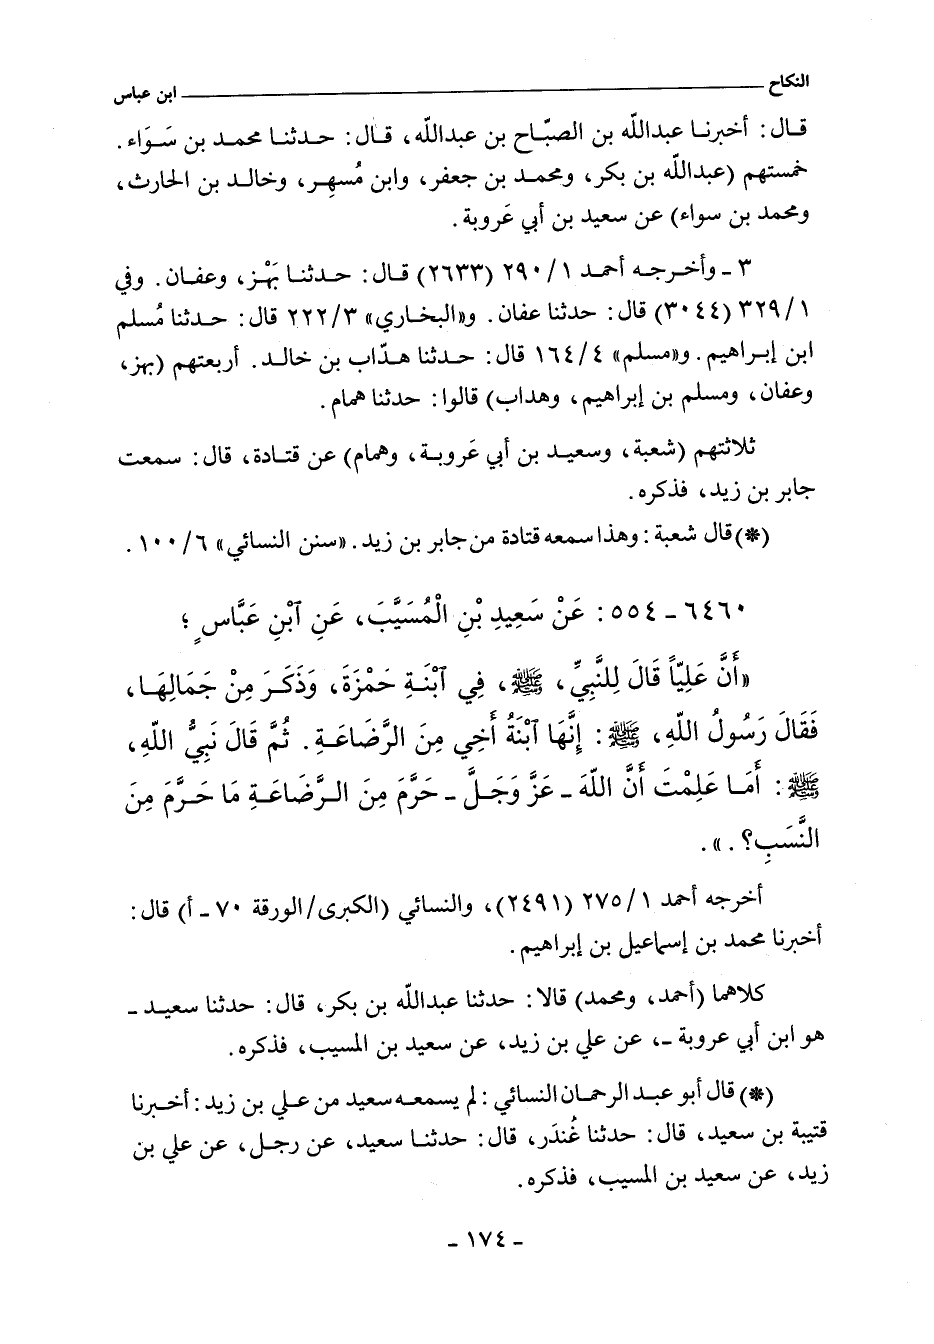 النكاح ــــــــــ ابن عباس
قال: أخبرنا عبدالله بن الصبّاح بن عبدالله، قال: حدثنا محمد بن سَوَاء.
خمستهم (عبدالله بن بكر، ومحمد بن جعفر، وابن مُسهِر، وخالد بن الحارث،
ومحمد بن سواء) عن سعيد بن أبي عَروبة.
٣ ـ وأخرجه أحمد ١/ ٢٩٠ (٢٦٣٣) قال: حدثنا بَهْز، وعفان. وفي
١/ ٣٢٩ (٣٠٤٤) قال: حدثنا عفان. و«البخاري» ٣/ ٢٢٢ قال: حدثنا مُسلم
ابن إبراهيم. و«مسلم» ٤/ ١٦٤ قال: حدثنا هدّاب بن خالد. أربعتهم (بهز،
وعفان، ومسلم بن إبراهيم، وهداب) قالوا: حدثنا همام.
ثلاثتهم (شعبة، وسعيد بن أبي عَروبة، وهمام) عن قتادة، قال: سمعت
جابر بن زيد، فذكره.
(*) قال شعبة: وهذا سمعه قتادة من جابر بن زيد. «سنن النسائي» ٦/ ١٠٠.
٦٤٦٠ ـ ٥٥٤: عَنْ سَعِيدِ بْنِ الْمُسَيَّبَ، عَنِ ٱبْنِ عَبَّاسٍ؛
«أَنَّ عَلِيّاً قَالَ لِلنَّبِيِّ، ﷺ، فِي ٱبْنَةِ حَمْزَةَ، وَذَكَرَ مِنْ جَمَالِهَا،
فَقَالَ رَسُولُ اللهِ، ﷺ: إِنَّهَا ٱبْنَةُ أَخِي مِنَ الرَّضَاعَةِ. ثُمَّ قَالَ نَبِيُّ اللهِ،
ﷺ: أَمَا عَلِمْتَ أَنَّ اللهَ ـ عَزَّ وَجَلَّ ـ حَرَّمَ مِنَ الرَّضَاعَةِ مَا حَرَّمَ مِنَ
النَّسَبِ؟.».
أخرجه أحمد ١/ ٢٧٥ (٢٤٩١)، والنسائي (الكبرى/الورقة ٧٠ ـ أ) قال:
أخبرنا محمد بن إسماعيل بن إبراهيم.
كلاهما (أحمد، ومحمد) قالا: حدثنا عبدالله بن بكر، قال: حدثنا سعيد ـ
هو ابن أبي عروبة ـ، عن علي بن زيد، عن سعيد بن المسيب، فذكره.
(*) قال أبو عبد الرحمان النسائي: لم يسمعه سعيد من علي بن زيد: أخبرنا
قتيبة بن سعيد، قال: حدثنا غُندَر، قال: حدثنا سعيد، عن رجل، عن علي بن
زيد، عن سعيد بن المسيب، فذكره.
ـ ١٧٤ ـ